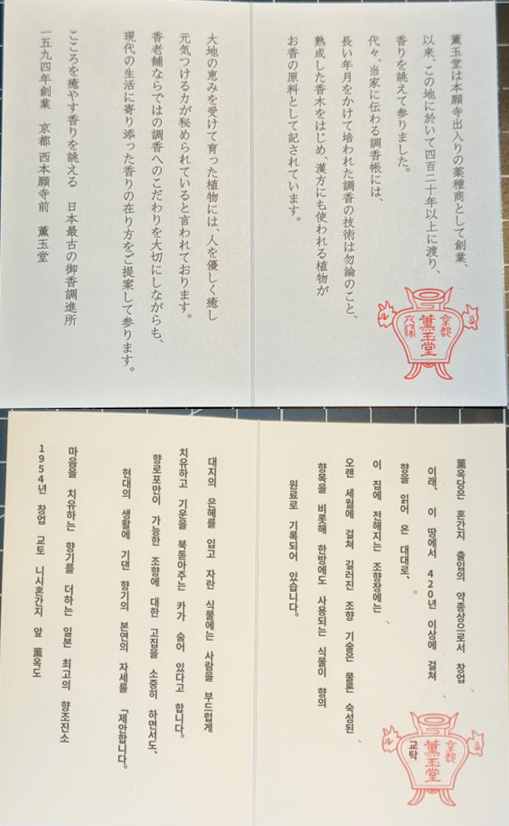 薫玉堂は本願寺出入りの薬種商として創業、
以来、この地に於いて四百二十年以上に渡り、
香りを誂えて参りました。
代々、当家に伝わる調香帳には、
長い年月をかけて培われた調香の技術は勿論のこと、
熟成した香木をはじめ、漢方にも使われる植物が
お香の原料として記されています。
京都
薫玉堂
大地の恵みを受けて育った植物には、人を優しく癒し
元気つける力が秘められていると言われております。
香老舗ならではの調香へのこだわりを大切にしながらも、
現代の生活に寄り添った香りの在り方をご提案して参ります。
こころを癒やす香りを誂える 日本最古の御香調進所
一五九四年創業 京都 西本願寺前 薫玉堂
薫옥당은 혼간지 출입의 약종상으로서 창업、
이래、이 땅에서 420년 이상에 걸쳐、
향을 읽어 온 대대로、。
이 집에 전해지는 조향장에는、
오랜 세월에 걸쳐 길러진 조향 기술은 물론 숙성된、
향목을 비롯해 한방에도 사용되는 식물이 향의
원료로 기록되어 있습니다。
京都
薫玉堂
교탁
대지의 은혜를 입고 자란 식물에는 사람을 부드럽게
치유하고 기운을 북돋아주는 카가 숨어 있다고 합니다。
향로포만이 가능한 조향에 대한 고집을 소중히 하면서도、
현대의 생활에 기댄 향기의 본연의 자세를 「제안합니다。
마음을 치유하는 향기를 더하는 일본 최고의 향조진소
1954년 창업 교토 니시혼간지 앞 薫옥도